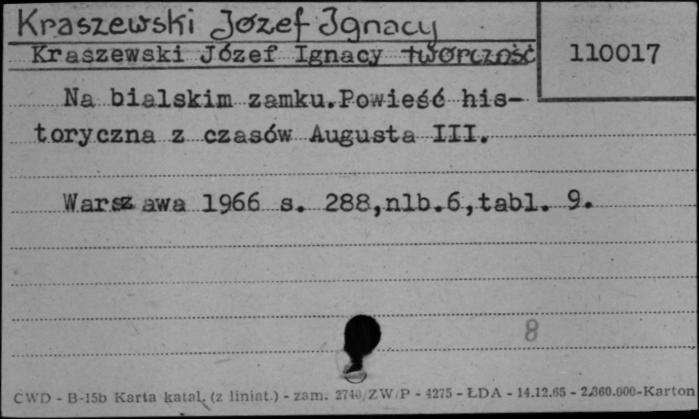 Kraszewski Józef Ignacy
Kraszewski Józef Ignacy twórczość
110017
Na bialskim zamku.Powieść his-
toryczna z czasów Augusta III.
Warsz awa 1966 s. 288,nlb.6,tabl. 9.
8
CWD - B-15b Karta katal. (z liniat.) - zam. 2740/ZW/P - 4275 - ŁDA - 14.12.65 - 2.360.000-Karton